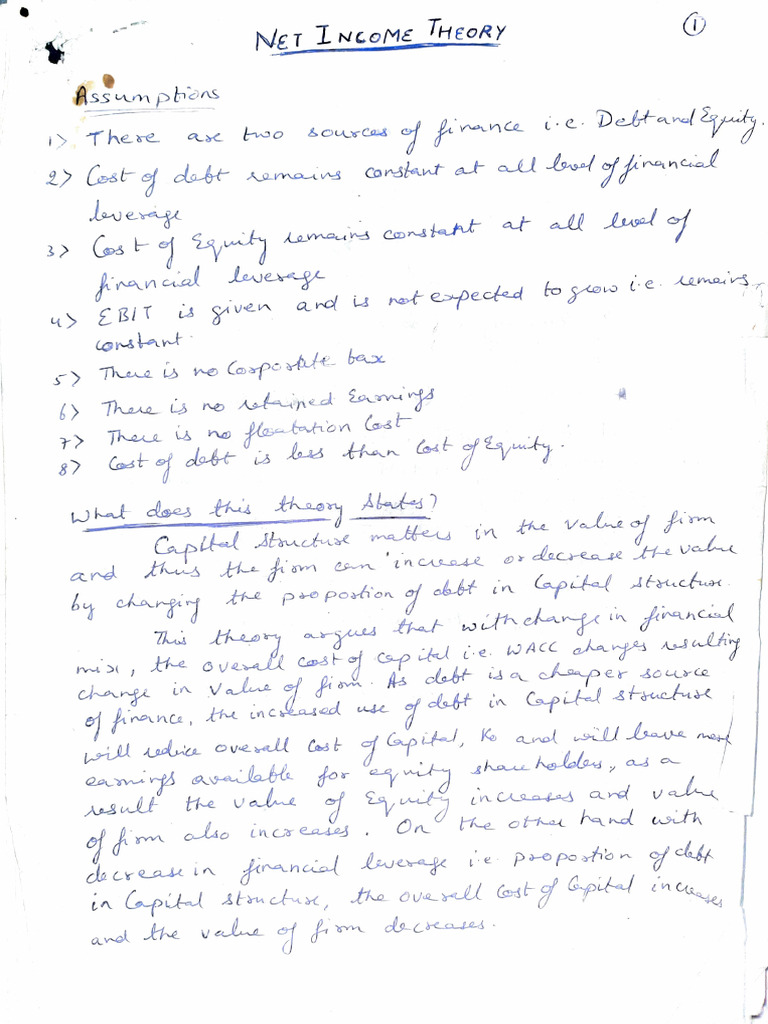 NET INCOME THEORY
1
Assumptions
1> There are two sources of finance i.e. Debt and Equity.
2> Cost of debt remains constant at all level of financial
leverage
3> Cost of Equity remains constant at all level of
financial leverage
4> EBIT is given and is not expected to grow i.e. remains
constant.
5> There is no Corporate tax
6> There is no retained Earnings
7> There is no floatation Cost
8> Cost of debt is less than Cost of Equity.
What does this theory States?
Capital structure matters in the value of firm
and thus the firm can increase or decrease the value
by changing the proportion of debt in Capital structure.
This theory argues that with change in financial
mix, the overall cost of capital i.e. WACC changes resulting
change in value of firm. As debt is a cheaper source
of finance, the increased use of debt in Capital structure
will reduce overall Cost of Capital, Ko and will leave more
earnings available for equity shareholders, as a
result the value of Equity increases and value
of firm also increases. On the other hand with
decrease in financial leverage i.e. proportion of debt
in Capital structure, the overall Cost of Capital increases
and the value of firm decreases.